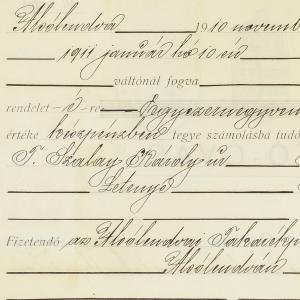 Alsólendva 1910 novemb
1911 január hó 10 én
váltónál fogva
rendelet-é-re Negyezernegyven
értéke készpénzben tegye számolásba tudó
T. Szabay Károly úr
Letenye
Fizetendő az Alsólendvai Takarékp
Alsólendván